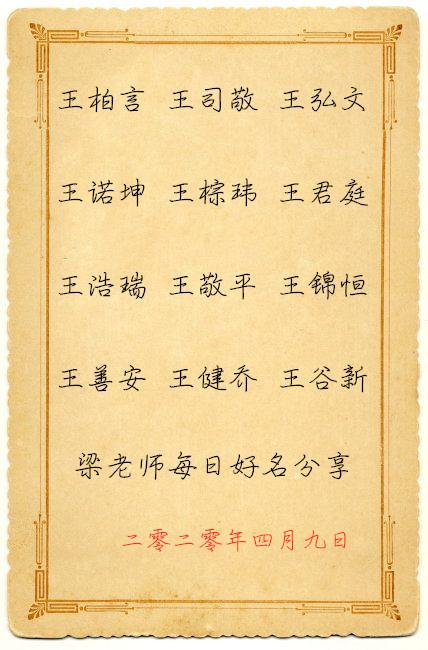 王柏言 王司敬 王弘文
王诺坤 王棕玮 王君庭
王浩瑞 王敬平 王锦恒
王善安 王健乔 王谷新
梁老师每日好名分享
二零二零年四月九日